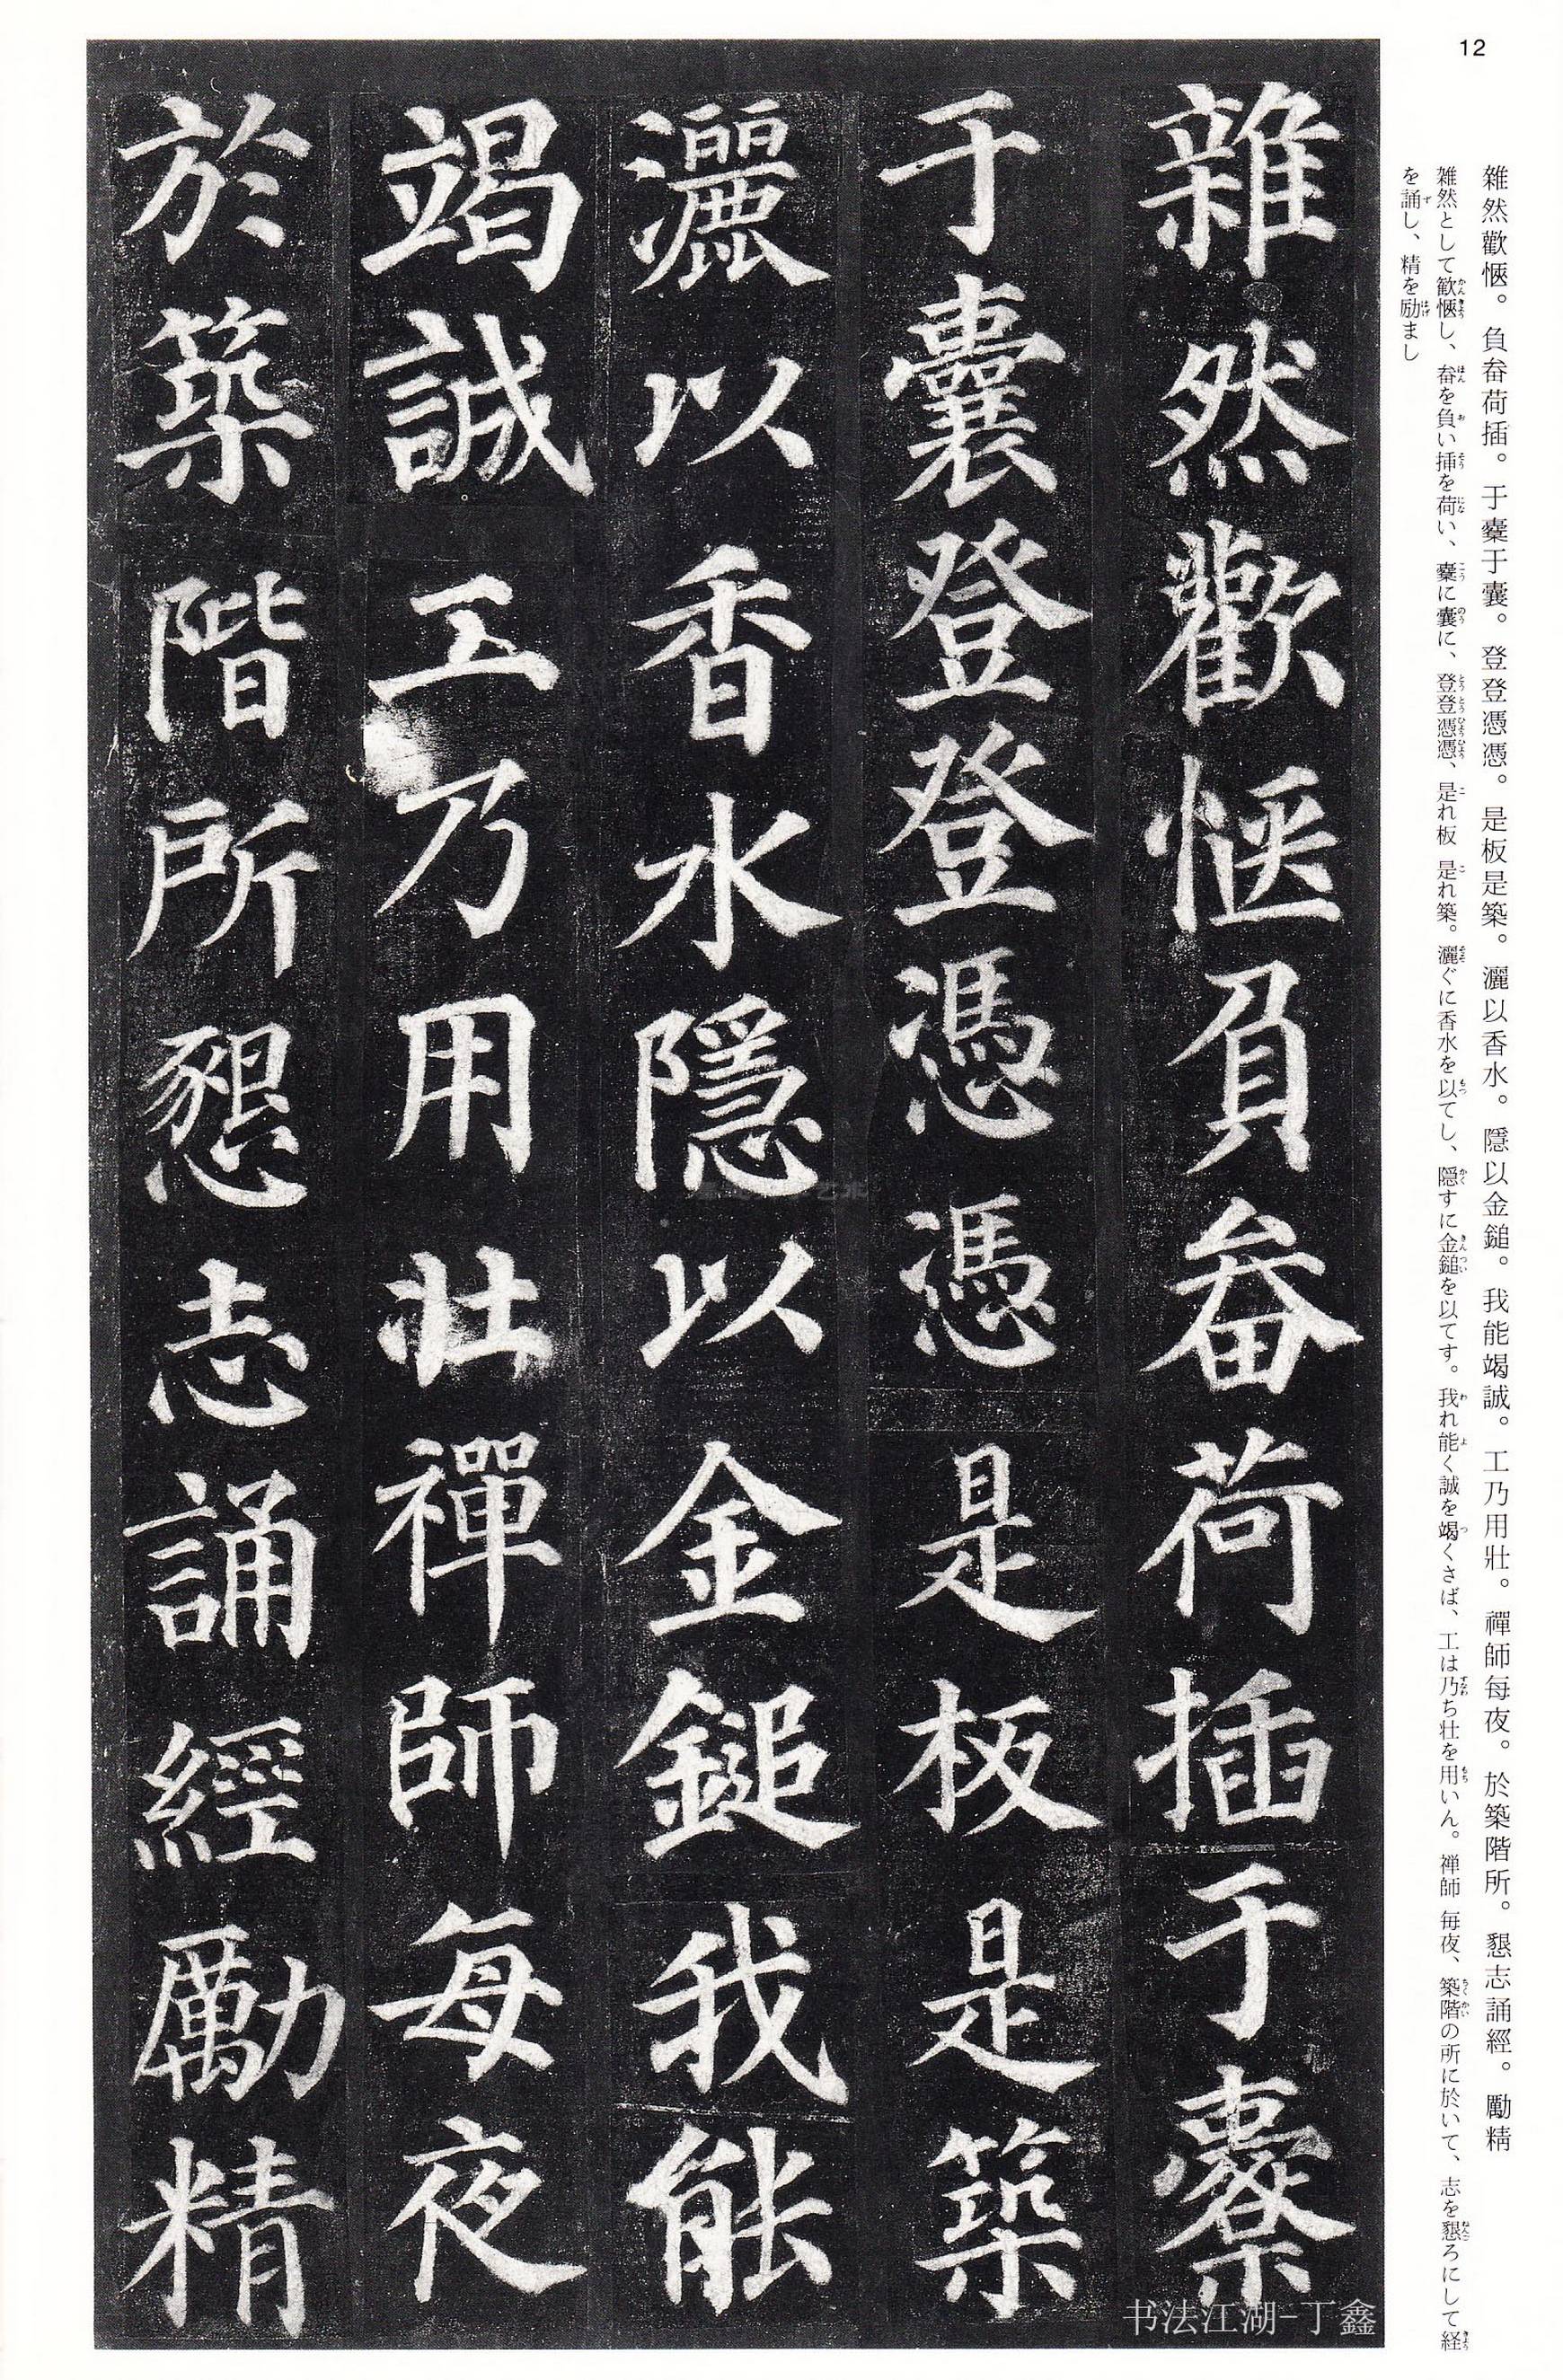 12
雜然歡愜。負畚荷插。于橐于囊。登登憑憑。是板是築。灑以香水。隱以金鎚。我能竭誠。工乃用壯。禪師每夜。於築階所。懇志誦經。勵精
雑然として歓愜し、畚を負い挿を荷い、橐に囊に、登登憑憑、是れ板 是れ築。灑ぐに香水を以てし、隠すに金鎚を以てす。我れ能く誠を竭くさば、工は乃ち壮を用いん。禅師 毎夜、築階の所に於いて、志を懇ろにして経
を誦し、精を励まし
雜然歡愜負畚荷插于橐
于囊登登憑憑是板是築
灑以香水隱以金鎚我能
竭誠工乃用壯禪師每夜
於築階所懇志誦經勵精
书法江湖-丁鑫